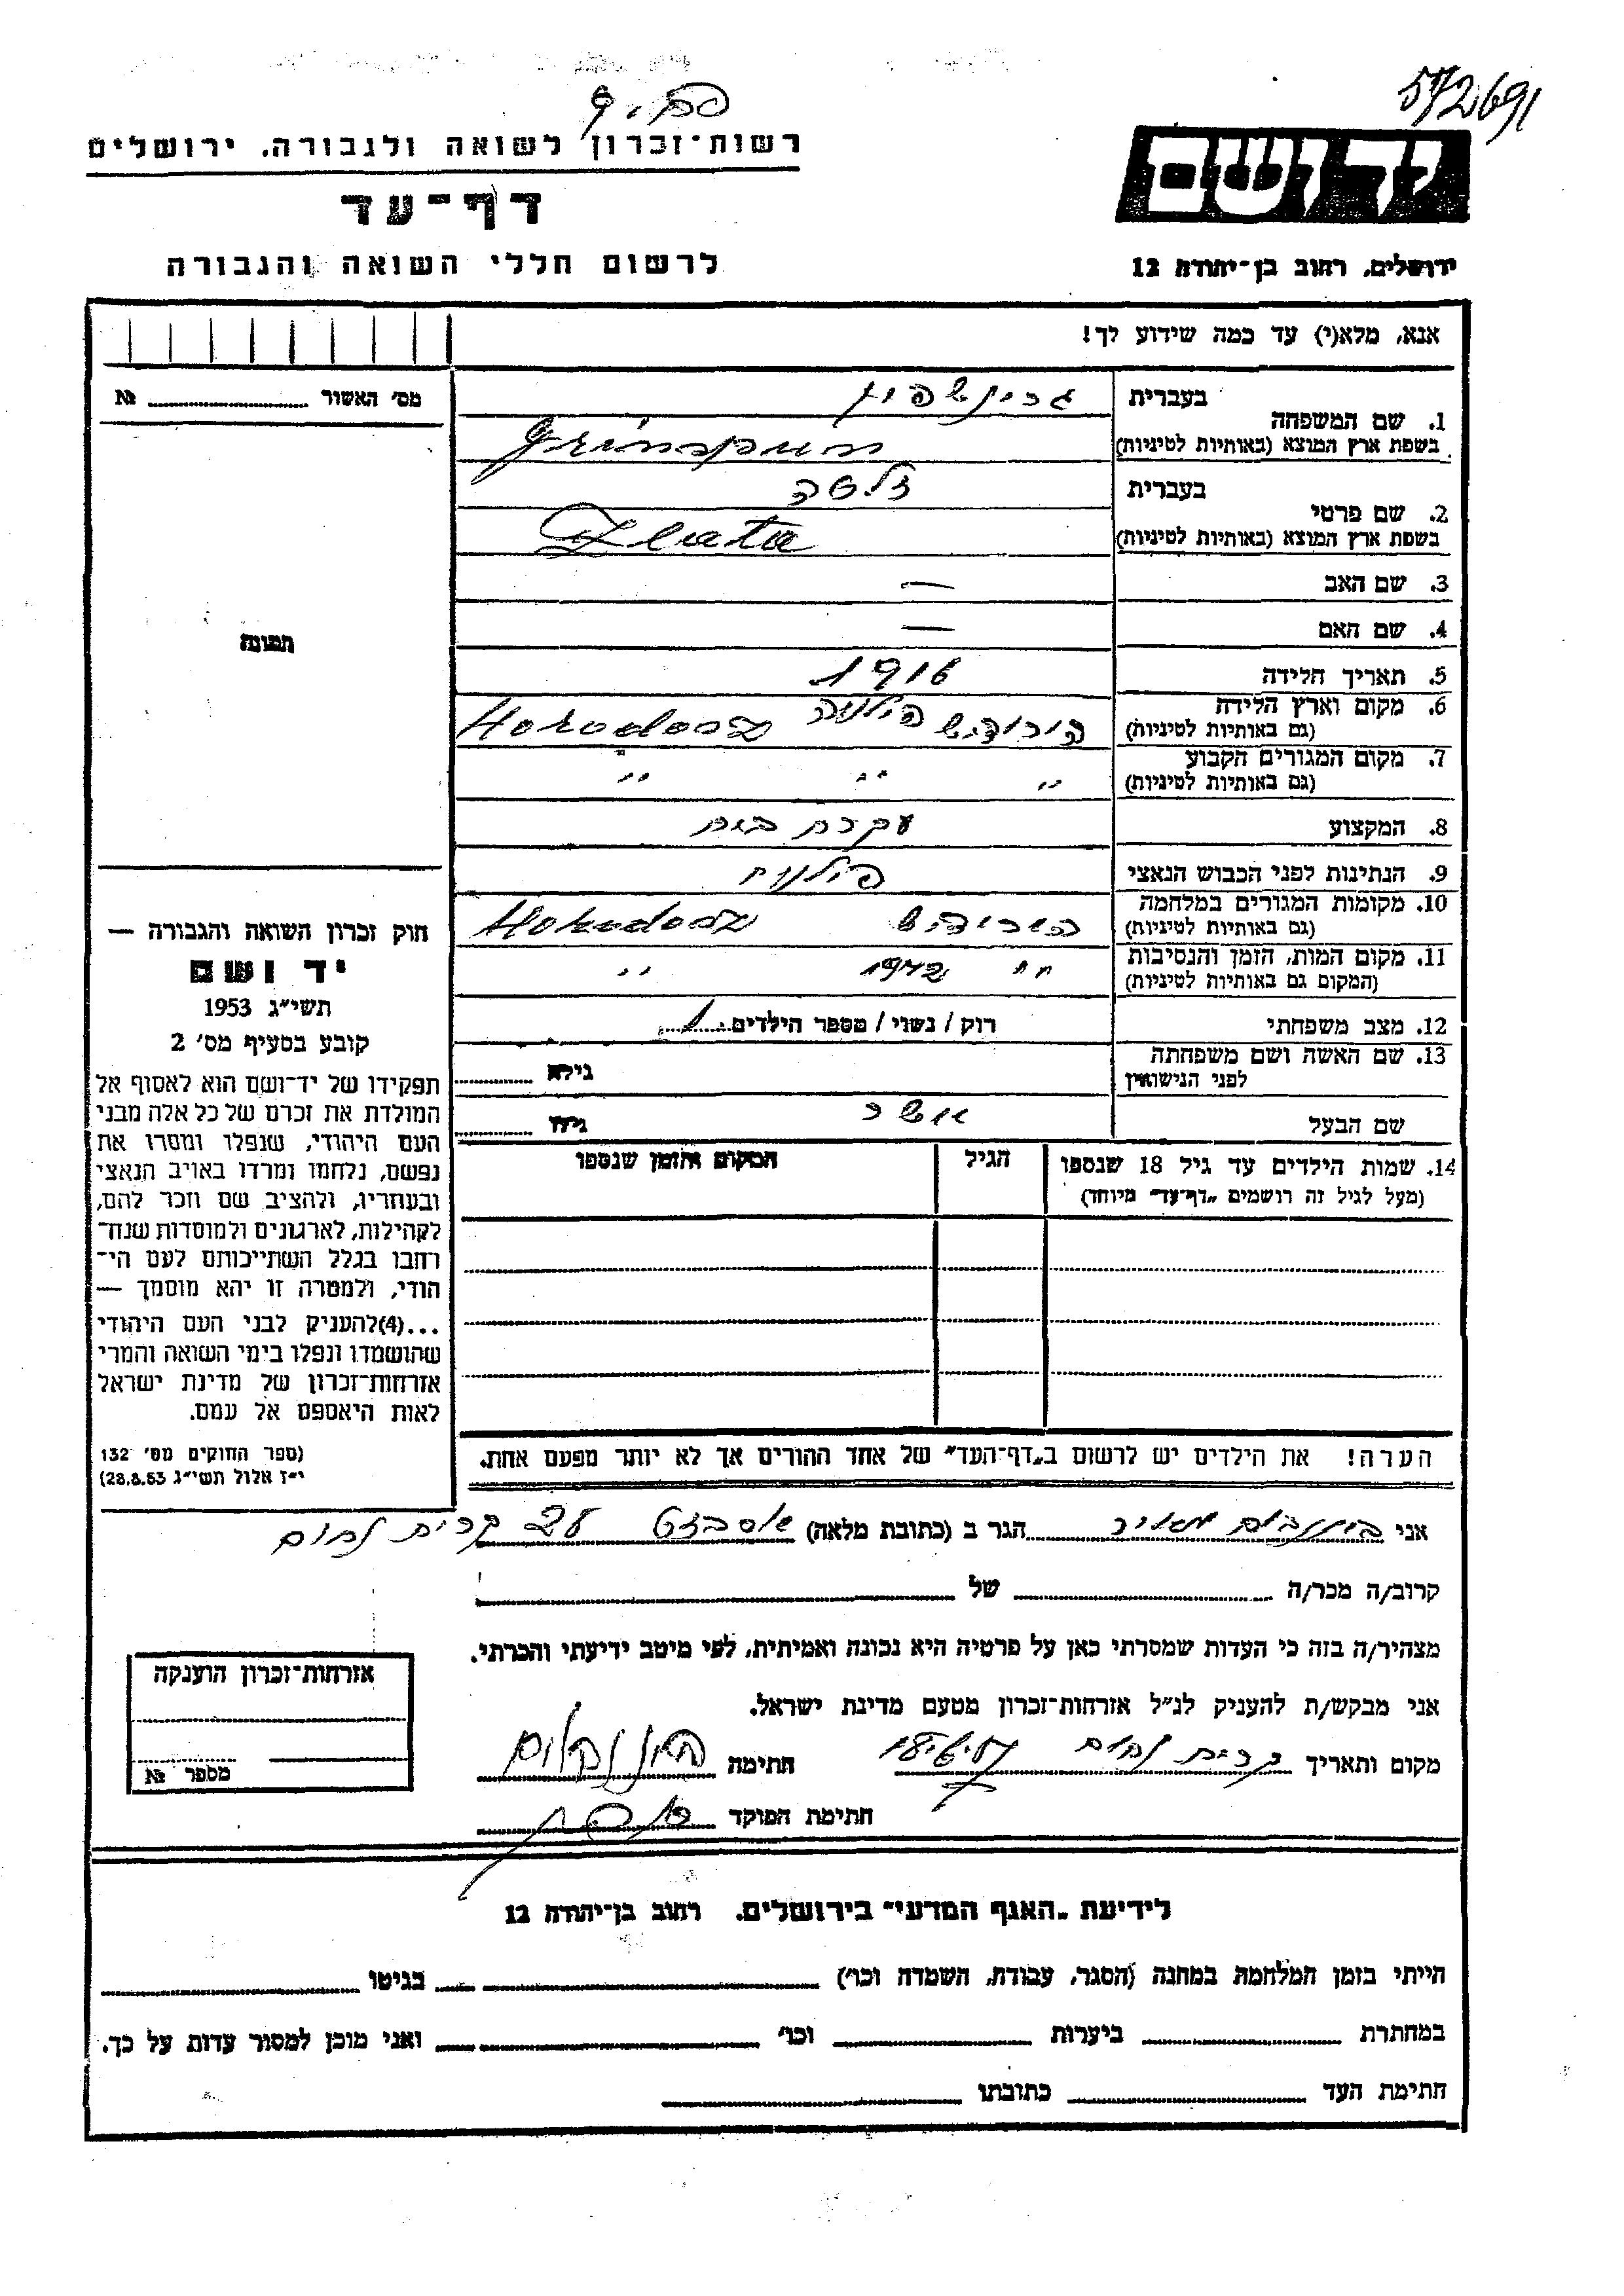 572691
רשות־זכרון לשואה ולגבורה, ירושלים
יד ושם
דף־עד
לרשום חללי השואה והגבורה
ירושלים, רחוב בן־יהודה 12
אנא, מלא(י) עד כמה שידוע לך!
מס' האשור № 
1. שם המשפחה בעברית גרינשפון
בשפת ארץ המוצא (באותיות לטיניות) Grinspun
2. שם פרטי בעברית זלטה
בשפת ארץ המוצא (באותיות לטיניות) Zlata
3. שם האב —
4. שם האם —
5. תאריך הלידה 1916
6. מקום וארץ הלידה (גם באותיות לטיניות) פולניה
7. מקום המגורים הקבוע (גם באותיות לטיניות) " " "
8. המקצוע עקרת בית
9. הנתינות לפני הכבוש הנאצי
10. מקומות המגורים במלחמה (גם באותיות לטיניות)
11. מקום המות, הזמן והנסיבות (המקום גם באותיות לטיניות) " 1942 "
12. מצב משפחתי רוק / נשוי / מספר הילדים 1
13. שם האשה ושם משפחתה לפני הנישואין גילא
שם הבעל אשר גילו
14. שמות הילדים עד גיל 18 שנספו (מעל לגיל זה רושמים „דף־עד" מיוחד)
הגיל
המקום והזמן שנספו
תמונה
חוק זכרון השואה והגבורה —
יד ושם
תשי"ג 1953
קובע בסעיף מס' 2
תפקידו של יד־ושם הוא לאסוף אל
המולדת את זכרם של כל אלה מבני
העם היהודי, שנפלו ומסרו את
נפשם, נלחמו ומרדו באויב הנאצי
ובעוזריו, ולהציב שם וזכר להם,
לקהילות, לארגונים ולמוסדות שנח־
רבו בגלל השתייכותם לעם הי־
הודי, ולמטרה זו יהא מוסמך —
...(4)להעניק לבני העם היהודי
שהושמדו ונפלו בימי השואה והמרי
אזרחות־זכרון של מדינת ישראל
לאות היאספם אל עמם.
(ספר החוקים מס' 132
י"ז אלול תשי"ג 28.8.53)
הערה! את הילדים יש לרשום ב„דף־העד" של אחד ההורים אך לא יותר מפעם אחת.
אני מאיר הגר ב (כתובת מלאה) קרית נחום
קרוב/ה מכר/ה של
מצהיר/ה בזה כי העדות שמסרתי כאן על פרטיה היא נכונה ואמיתית, לפי מיטב ידיעתי והכרתי.
אני מבקש/ת להעניק לנ"ל אזרחות־זכרון מטעם מדינת ישראל.
מקום ותאריך קרית נחום חתימה
חתימת הפוקד
אזרחות־זכרון הוענקה
מספר №
לידיעת „האגף המדעי" בירושלים. רחוב בן־יהודה 12
הייתי בזמן המלחמה במחנה (הסגר, עבודת, השמדה וכו') בגיטו
במחתרת ביערות וכו' ואני מוכן למסור עדות על כך.
חתימת העד כתובתו